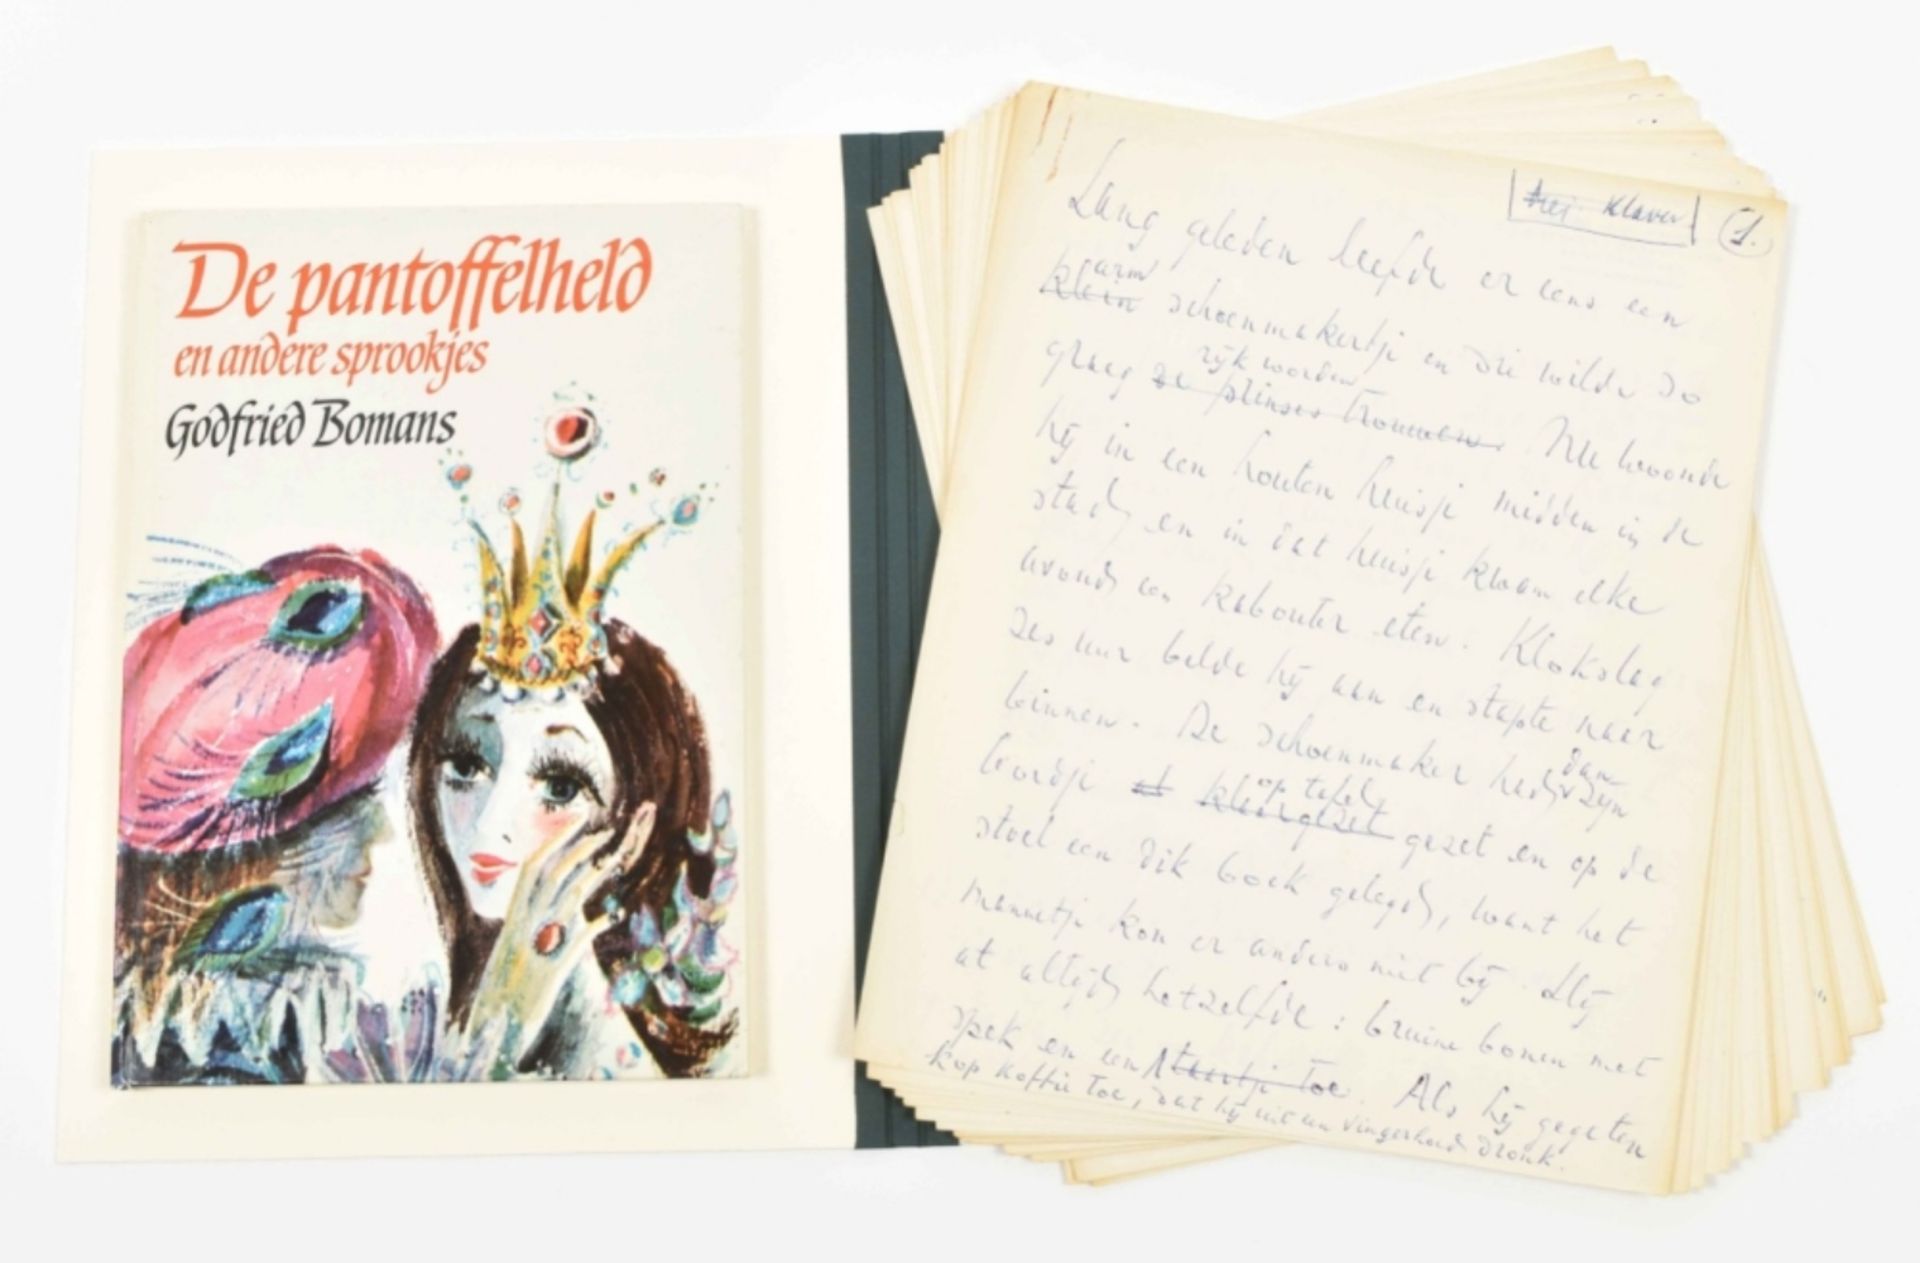 De pantoffelheld
en andere sprookjes
Godfried Bomans
Klaver
1.
Lang geleden leefde er eens een
arm
klein schoenmakertje en die wilde zo
rijk worden
graag de prinses trouwen. Nu woonde
hij in een houten huisje midden in de
stad, en in dat huisje kwam elke
avond een kabouter eten. Klokslag
zes uur belde hij aan en stapte naar
binnen. De schoenmaker had, dan zijn
op tafel
bordje klaargezet gezet en op de
stoel een dik boek gelegd, want het
mannetje kon er anders niet bij. Hij
at altijd hetzelfde: bruine bonen met
spek en een taartje toe. Als hij gegeten
kop koffie toe, dat hij uit een vingerhoed dronk.